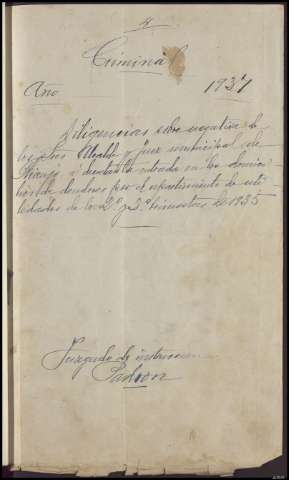 4
Criminal
Año 1937
Diligencias sobre negativa de
los Alcalde y Juez municipal de
a decretar la entrada en los domici
lios de deudores por el repartimiento de uti
lidades de los 2º y 3º trimestres de 1935
Juzgado de instruccion
Padron